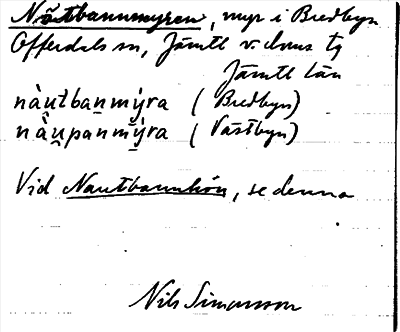 Nåtbannmyren, myr i Bredbyn
Offerdals sn, Jämtl v. domss tg
Jämtl län
nàu̯tbanmýra (Bredbyn)
nàu̯panmýra (Västbyn)
Vid Nautbannhón, se denna
Nils Simonsson